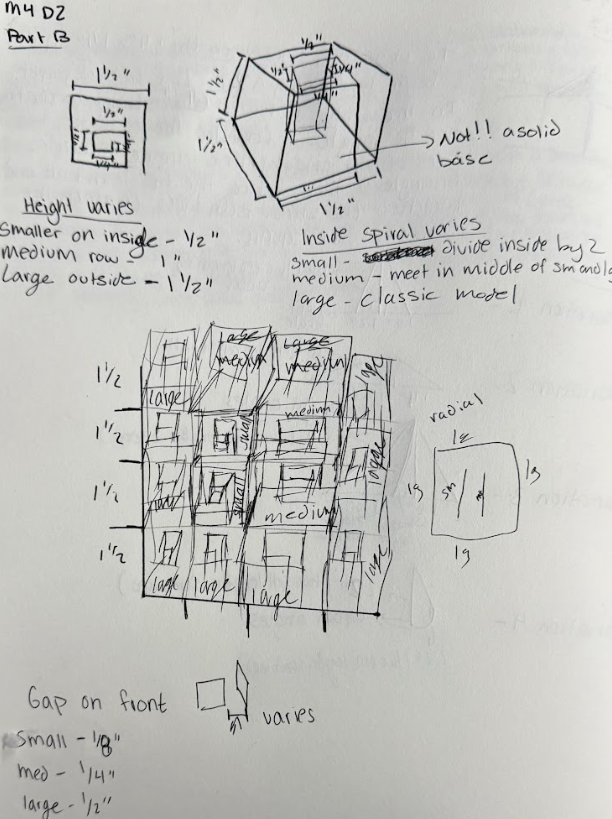 M4 D2
Part B
1 1/2"
1/2"
1/2"
1/4"
1/2"
1/2"
1/4"
1/4"
1 1/2"
1 1/2"
1 1/2"
Not!! a solid
base
Height varies
Smaller on inside - 1/2"
medium row - 1"
Large outside - 1 1/2"
Inside spiral varies
small - divide inside by 2
medium - meet in middle of sm and lg
large - classic model
1 1/2
1 1/2
1 1/2
1 1/2
large
medium
large
medium
large
large
small
medium
large
small
medium
large
large
large
large
radial
lg
lg
sm
lg
lg
Gap on front
varies
Small - 1/8"
med - 1/4"
large - 1/2"